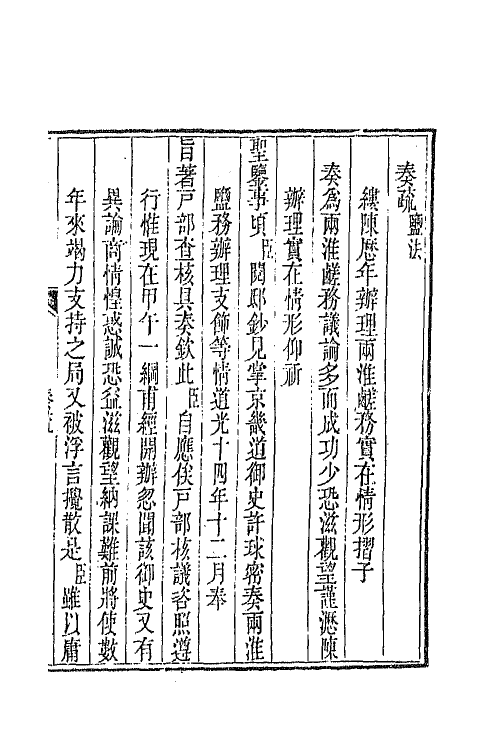 奏疏鹽法
縷陳歷年辦理兩淮鹺務實在情形摺子
奏爲兩淮鹺務議論多而成功少恐滋觀望謹瀝陳
辦理實在情形仰祈
聖鑒事頃臣閱邸鈔見掌京畿道御史許球密奏兩淮
鹽務辦理支飾等情道光十四年十二月奉
旨著戸部查核具奏欽此臣自應俟戸部核議咨照遵
行惟現在甲午一綱甫經開辦忽聞該御史又有
異論商情惶惑誠恐益滋觀望納課難前將使數
年來竭力支持之局又被浮言攪散是臣雖以庸